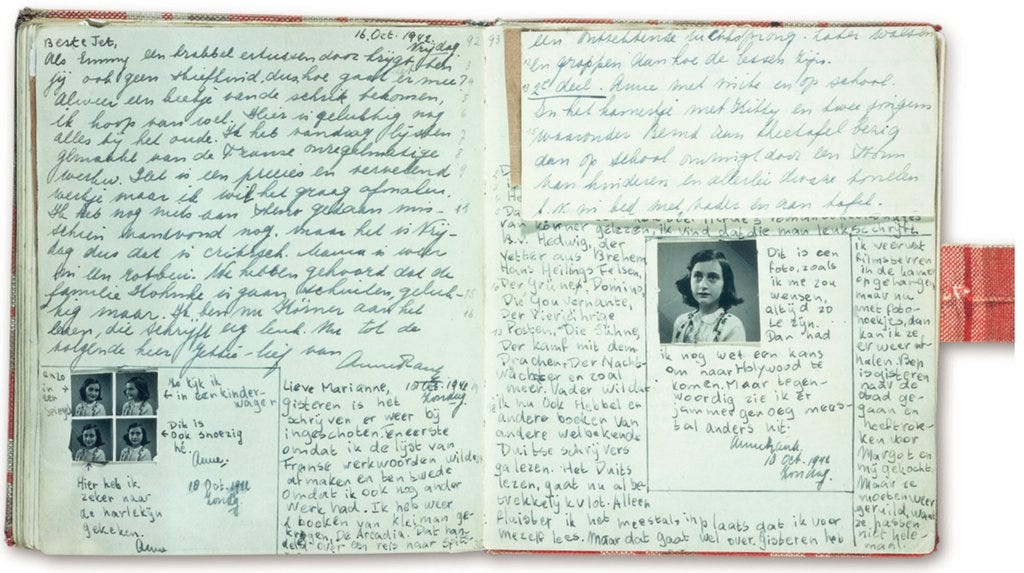 16 Oct. 1942
Vrijdag
Beste Jet,
Als Emmy een krabbel ertussen door krijgt ben
jij ook geen stiefkind, dus hoe gaat er mee?
Alweer een beetje van de schrik bekomen,
ik hoop van wel. Hier is gelukkig nog
alles bij het oude. Ik heb vandaag lijsten
gemaakt van de Franse onregelmatige
werkw. Het is een precies en vervelend
werkje maar ik wil het graag afmaken.
Ik heb nog niets aan steno gedaan mis-
schien vanavond nog, maar het is Vrij-
dag dus dat is critisch. Mama is weer
in een rotbui. We hebben gehoord dat de
familie Kohnke is gaan schuilen, geluk-
kig maar. Ik ben nu Körner aan het
lezen, die schrijft erg leuk. Nu tot de
volgende keer Jettie-lief van
Anne Frank
enzo
in
een
spiegel
No kijk ik
in een kinder-
wager
Dit is
ook snoezig
hé.
Anne.
Hier heb ik
zeker naar
de harlekijn
gekeken.
Anne
18 Oct. 1942
Zondag
Lieve Marianne, 18 Oct. 1942
Zondag
gisteren is het
schrijven er weer bij
ingeschoten. Eneerste
omdat ik de lijst van
Franse werkwoorden wilde
afmaken en ten twede
omdat ik ook nog ander
werk had. Ik heb weer
2 boeken van Kleiman ge-
kregen, De Arcadia. Dat han-
deld over een reis naar Spits-
92 93
een ontzettende luchtsprong. Later walsen
en grappen aan hoe de lessen zijn.
2e deel. Anne met visite en op school.
In het kamertje met Kitty en twee jongens
waaronder Bernd aan theetafel bezig
dan op school omringd door een
van kinderen en allerlei dwaze tonelen
b.v. in bed met vader en aan tafel.
van Körner gelezen, ik vind dat die man leuk schrijft.
B.v. Hedwig, der
Vetter aus Bremen,
Hans Heilings Felsen,
Der Grünen Domino,
Die Gouvernante,
Der Vierjährige
Posten, Die Sühne,
Der Kampf mit dem
Drachen, Der Nacht-
wächter en zoo
meer. Vader wil dat
ik nu ook Hebbel en
andere boeken van
andere welbekende
Duitse schrijvers
ga lezen. Het Duits
lezen, gaat nu al be-
trekkelijk vlot. Alleen
fluister ik het meestal, in plaats dat ik voor
mezelf lees. Maar dat gaat wel over. Gisteren heb
Dit is een
foto, zoals
ik me zou
wensen,
altijd zo
te zijn.
Dan had
ik nog wel een kans
om naar Holywood te
komen. Maar tegen-
woordig zie ik er
jammer genoeg mees-
tal anders uit.
Annefrank.
18 Oct. 1942
Zondag.
ik veerust
filmsterren
in de kamer
opgehangen,
maar nu
met foto-
hoekjes, dan
kan ik ze
er weer af
halen. Bep
is gisteren
naar de
stad ge-
gaan en
heeft rok-
ken voor
Margot en
mij gekocht.
Maar ze
moeten weer
geruild, want
ze passen
niet hele-
maal.